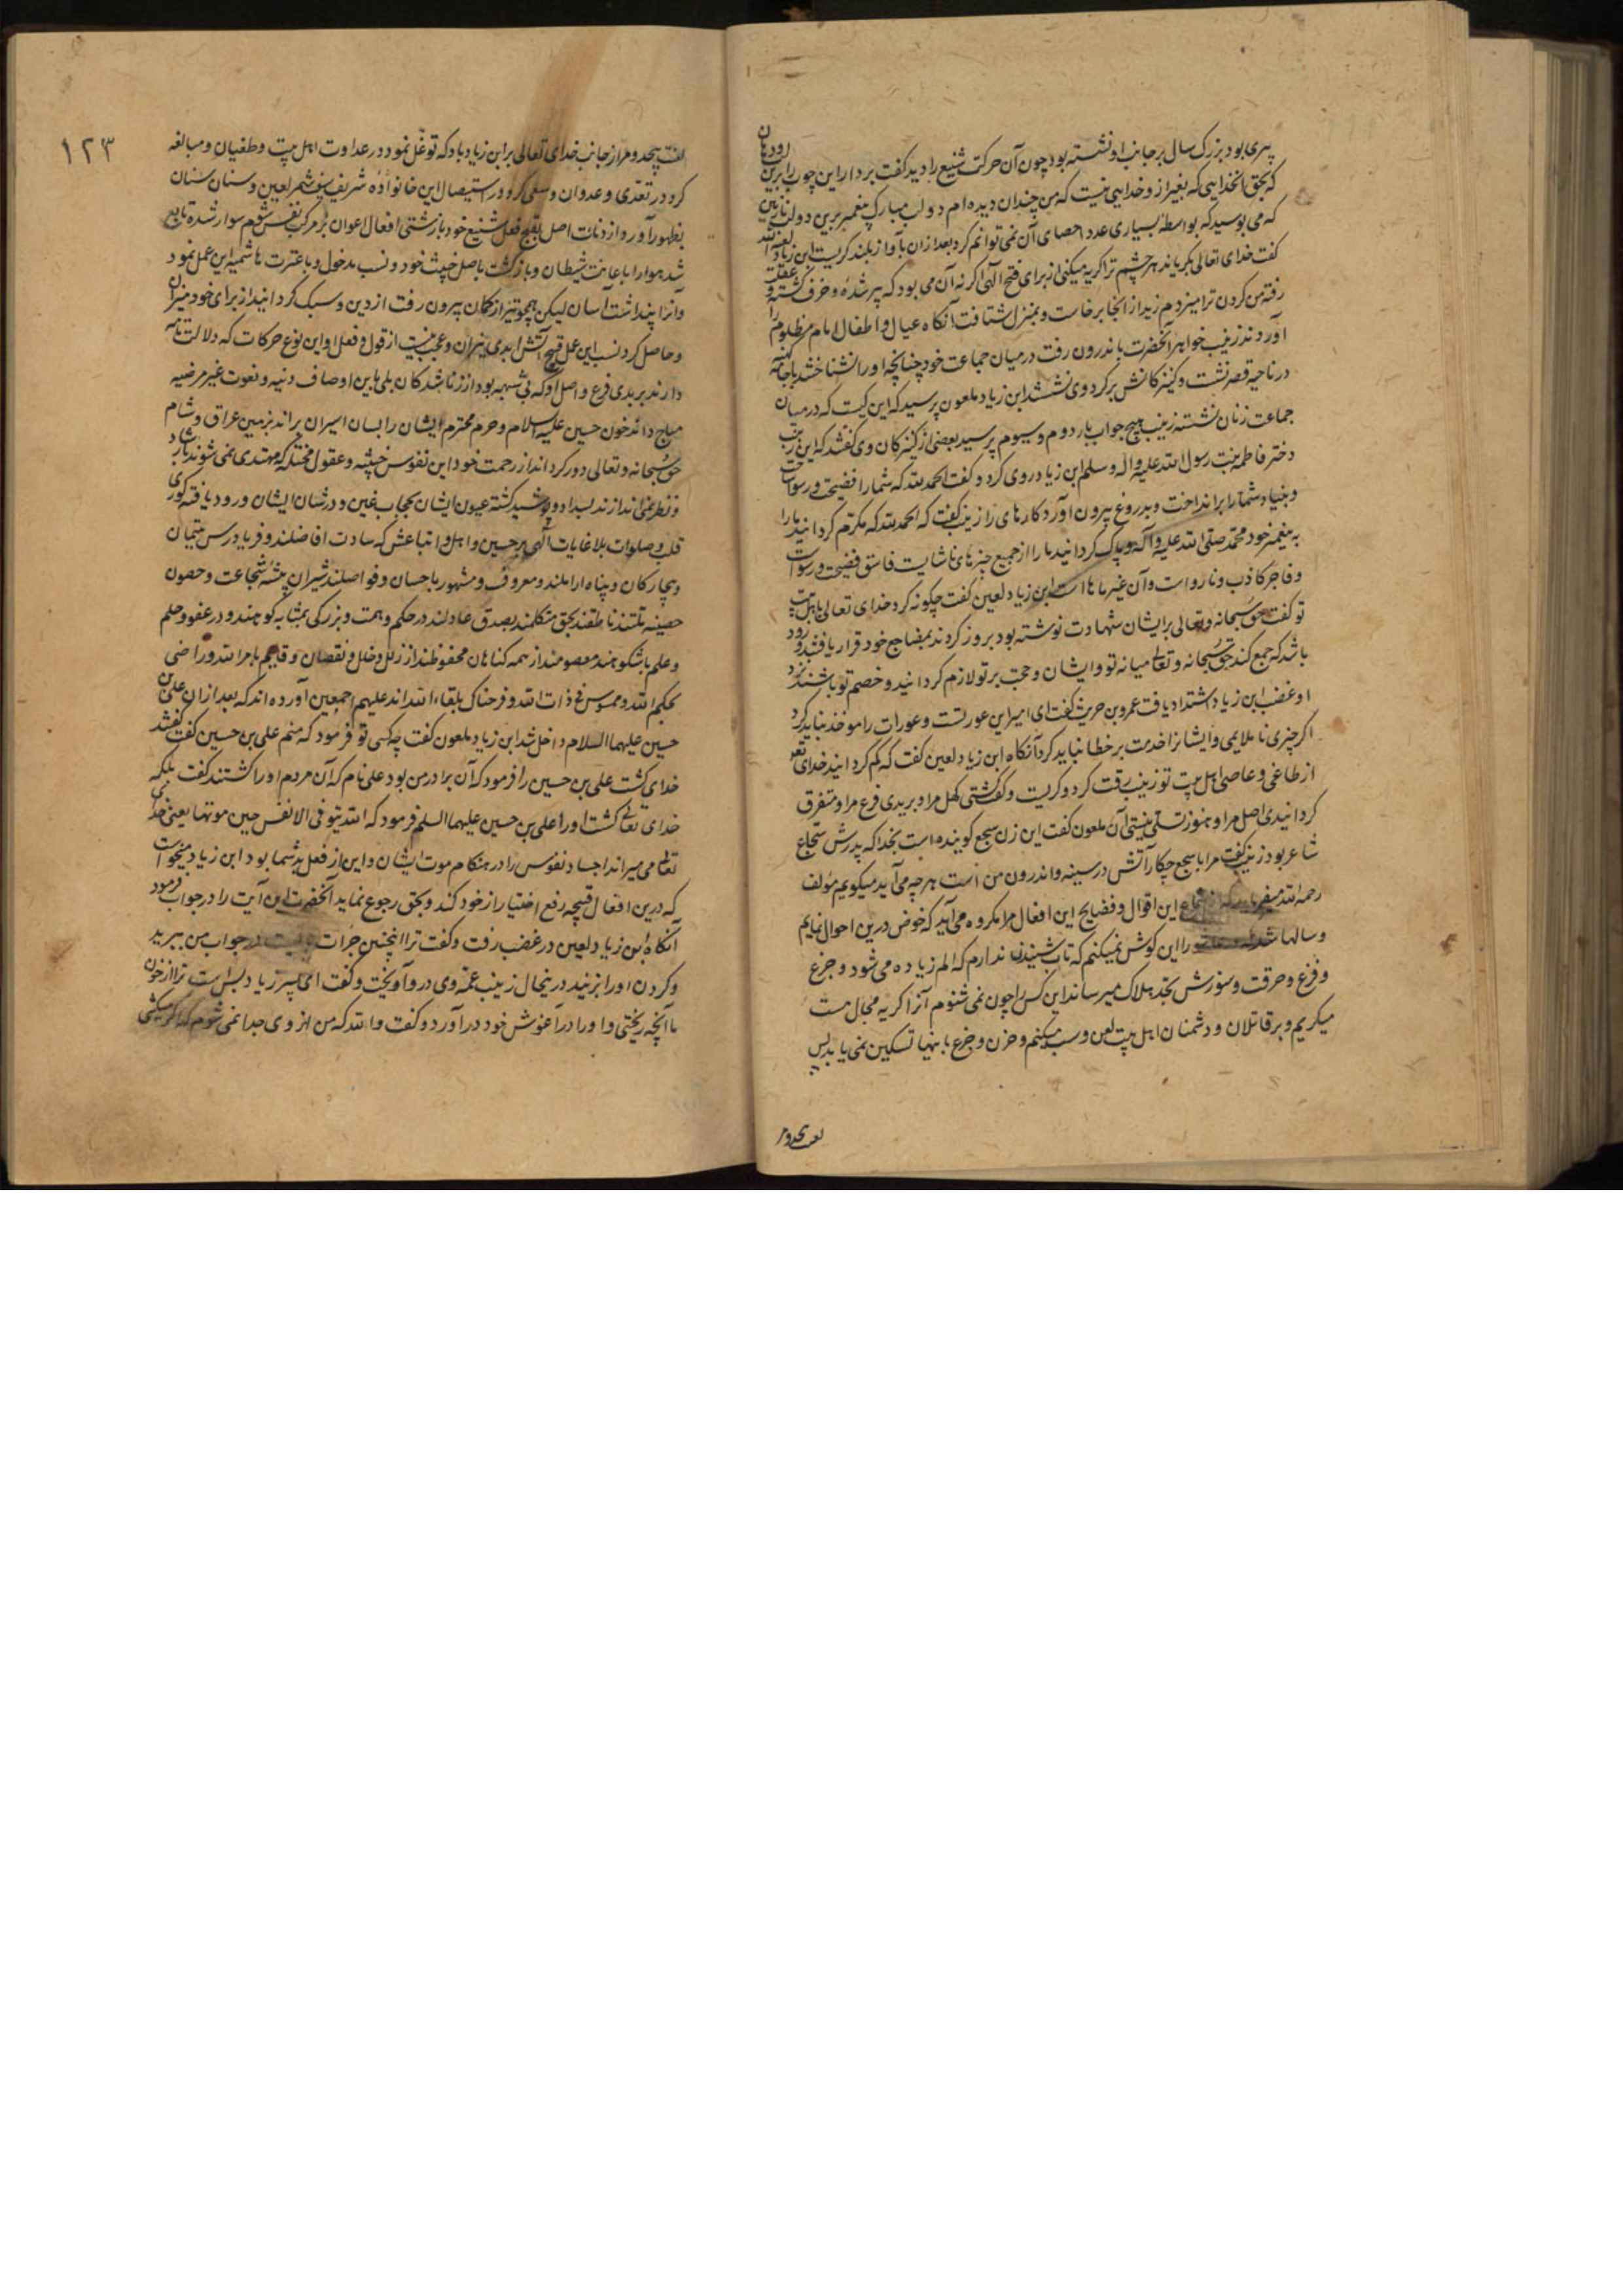 پیری بود بزرک سال بر جانب او نشسته بود چون آن حرکت شنیع را دید کفت بردار این چوب را برین
که بحق آنخدایی که بغیر از و خدایی نیست که من چندان دیده ام دو لب مبارک پیغمبر برین دو لب
که می بوسید که بواسطه بسیاری عدد احصای آن نمی توانم کرد بعد از ان بآواز بلند کریست ابن زیاد
کفت خدای تعالی بکریاند هر چشم ترا کریه میکنی از برای فتح الهی اکر نه آن می بود که پیر شدهٔ و خرف کشتهٔ و عقلت
رفته من کردن ترا میزدم زید از انجا برخاست و بمنزل شتافت آنکاه عیال و اطفال امام مظلوم را
آوردند زینب خواهر آنحضرت باندرون رفت در میان جماعت خود چنانچه او را نشناختند با جامه کهنه
در ناحیه قصر نشست و کنیزکانش بر کرد وی نشستند ابن زیاد ملعون پرسید که این کیست که در میان
جماعت زنان نشسته زینب هیچ جواب بار دوم و سیوم پرسید بعضی از کنیزکان وی کفتند که این زینب
دختر فاطمه بنت رسول الله علیه واله وسلم ابن زیاد روی کرد و کفت الحمد لله که شما را فضیحت و رسوا ساخت
و بنیاد شما را برانداخت و بدروغ بیرون آورد کارهای را زینب کفت که الحمد لله که مکرم کردانید ما را
به پیغمبر خود محمد صلی الله علیه وآله و پاک کردانید ما را از جمیع چیزهای ناشایست فاسق فضیحت و رسواست
و فاجر کاذب و نارواست و آن غیر ماها است ابن زیاد لعین کفت چکونه کرد خدای تعالی باهل بیت
تو کفت حق سبحانه و تعالی بر ایشان شهادت نوشته بود بروز کردند بمضاجع خود قرار یافتند و زود
باشد که جمع کند حق سبحانه و تعالی میانه تو و ایشان و حجت بر تو لازم کردانید و خصم تو باشند نزد
او غضب ابن زیاد اشتداد یافت عمرو بن حریث کفت ای امیر این عورتست و عورات را مواخذ نباید کرد
اکر چیزی ناملایمی و ایشانرا خدمت بر خطا نباید کرد آنکاه ابن زیاد لعین کفت که کم کردانید خدای تعر
از طاغی و عاصی اهل بیت تو زینب رقت کرد و کریست و کفت کشتی کهل مرا و بریدی فرع مرا و متفرق
کردانیدی اصل مرا و هنوز تسلی نیستی آن ملعون کفت این زن سجع کوینده است بخدا که پدرش سجاع
شاعر بود زینب کفت مرا با سجع چکار آتش در سینه و اندرون من است هر چه می آید میکویم مؤلف
رحمه الله میفرماید که از سماع این اقوال و فضایح این افعال مرا مکروه می آید که خوض درین احوال نمایم
و سالها شد که و خود را این کوش نمیکنم که تاب شنیدن ندارم که الم زیاده می شود و جزع
و فزع و حرقت و سوزش بحد هلاک میرساند این کس را چون نمی شنوم آنرا کریه مجال هست
میکریم و بر قاتلان و دشمنان اهل بیت لعن و سب میکنم و حزن و جزع باینها تسکین نمی یابد پس
لعنت بیحد و مر
۱۲۳
لعنت بیحد و مر از جانب خدای تعالی بر ابن زیاد باد که توغل نمود در عداوت اهل بیت و طغیان و مبالغه
کرد در تعدی و عدوان و سعی کرد در استیصال این خانواده شریف بتیغ شمر لعین و سنان سنان
بظهور آورد از دنائت اصل بقبح فعل شنیع خود باز زشتی افعال اعوان بر مرکب نفس شوم سوار شده تابع
شد هوا را باعانت شیطان و بازکشت باصل خبیث خود و نسب مدخول و با عترت هاشمیه این عمل نمود
و آنرا پنداشت آسان لیکن همچو تیر از کمان بیرون رفت از دین و سبک کردانید از برای خود میزان
و حاصل کرد نسب این عمل قبیح آتش ابدی نیران و عجب نیست از قول و فعل او این نوع حرکات که دلالت تامه
دارند بر بدی فرع و اصل او که بی شبهه بود از زناشدکان بلی باین اوصاف دنیه و نعوت غیر مرضیه
مباح داند خون حسین علیه السلام و حرم محترم ایشان را بسان اسیران براند بزمین عراق و شام
حق سبحانه و تعالی دور کرداند از رحمت خود این نفوس خبیثه و عقول مختله که مهتدی نمی شوند
و نظر نمی اندازند بسداد و پوشیده کشته عیون ایشان بحجاب غین و در شان ایشان ورود یافته کوری
قلب و صلوات بلا غایات الهی بر حسین و اهل و اتباعش که سادت افاضلند و فریادرس یتیمان
و بیچارکان و پناه اراملند و معروف و مشهور باحسان و فواضلند شیران بیشه شجاعت و حصون
حصینه ناطقند بحق متکلمند بصدق عادلند در حکم و همت و بزرکی بمثابه کوهند و در عفو و حلم
و علم باشکوهند معصومند از همه کناهان محفوظند از زلل و خلل و نقصان و قایم بامر الله و راضی
بحکم الله و ممسوس فی ذات الله و فرحناک بلقاء الله اند علیهم اجمعین آورده اند که بعد از ان علی بن
حسین علیهما السلام داخل شد ابن زیاد ملعون کفت چه کسی تو فرمود که منم علی بن حسین کفت
خدای کشت علی بن حسین را فرمود که آن برادر من بود علی نام که آن مردم او را کشتند کفت بلکه
خدای تعالی کشت او را علی بن حسین علیهما السلم فرمود که الله یتوفی الانفس حین موتها یعنی خدای
تعالی می میراند اجساد نفوس را در هنکام موت ایشان و این از فعل بد شما بود ابن زیاد میخواست
که درین افعال قبیحه رفع اختیار از خود کند و بحق رجوع نماید آنحضرت این آیت را در جواب فرمود
آنکاه ابن زیاد لعین در غضب رفت و کفت ترا اینچنین جرات در جواب من ببرید
و کردن او را بزنید درینحال زینب عمه وی در وی آویخت و کفت ای پسر زیاد بس است ترا از خون
ما آنچه ریختی و او را در آغوش خود درآورد و کفت والله که من از وی جدا نمی شوم که اکر میکشی